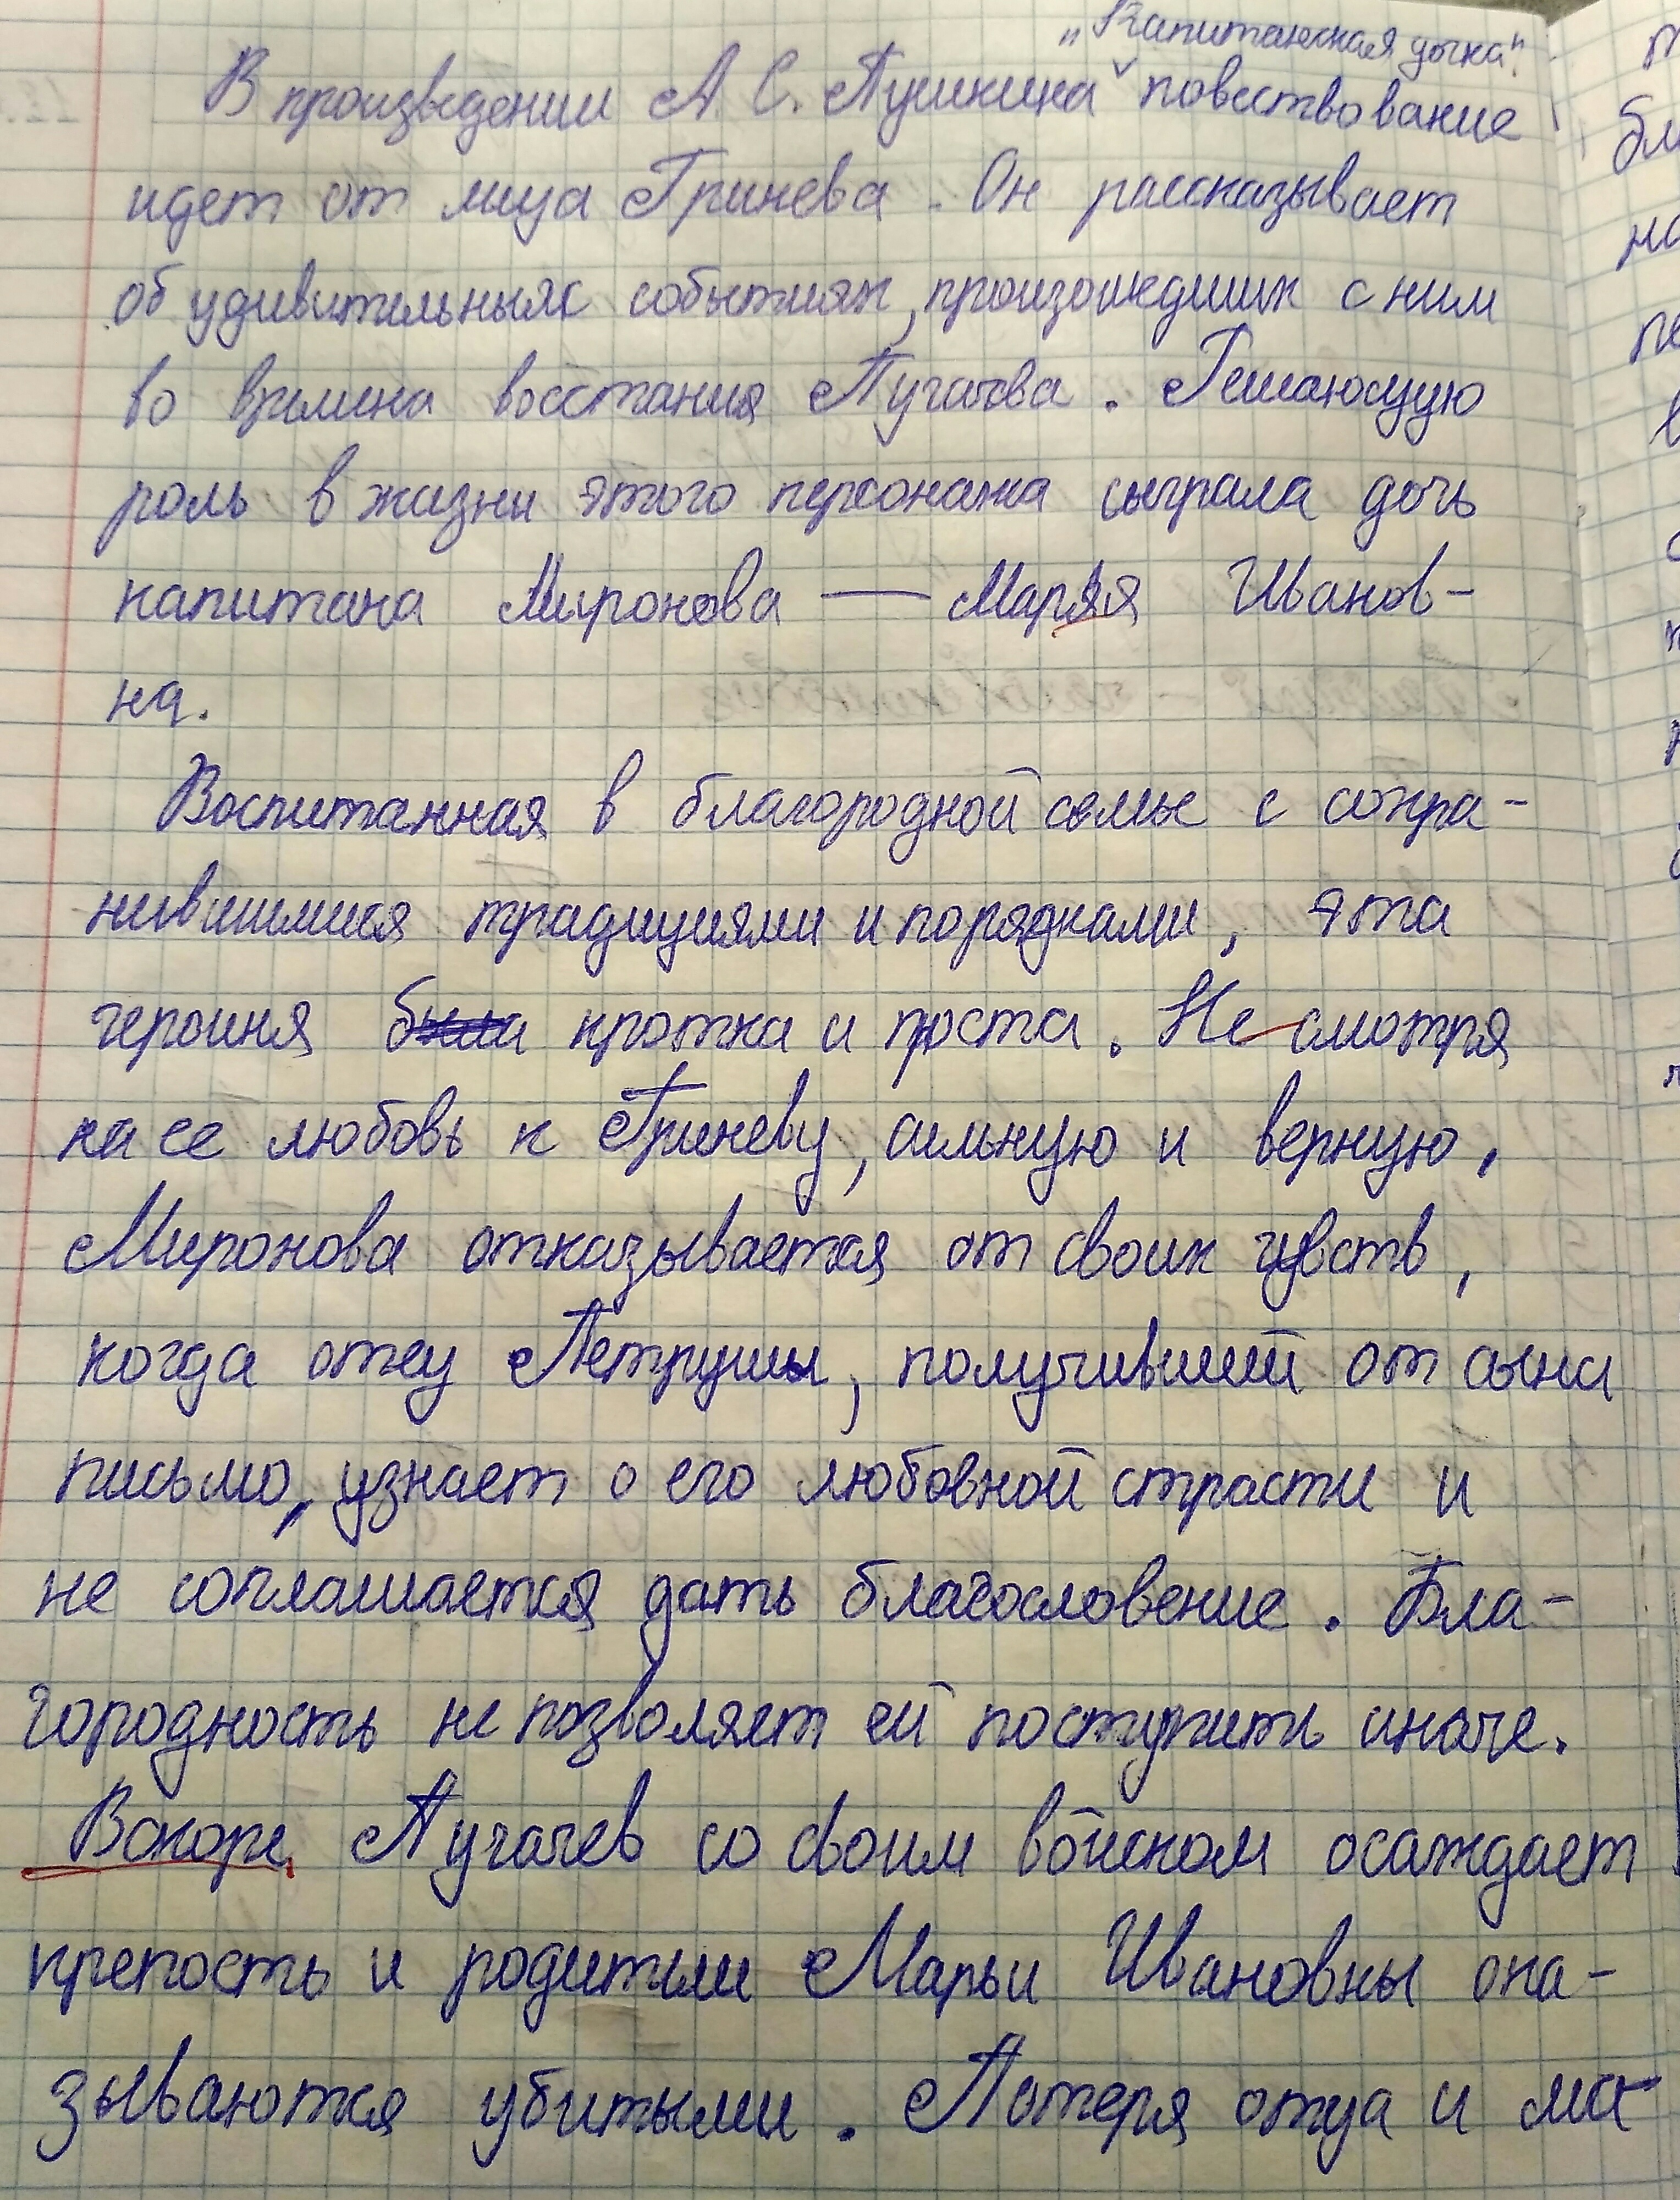 „Капитанская дочка"
В произведении А. С. Пушкина повествование
идет от лица Гринева. Он рассказывает
об удивительных событиях, произошедших с ним
во времена восстания Пугачева. Решающую
роль в жизни этого персонажа сыграла дочь
капитана Миронова — Марья Иванов-
на.
Воспитанная в благородной семье с сохра-
нившимися традициями и порядками, эта
героиня кротка и проста. Не смотря
на ее любовь к Гриневу, сильную и верную,
Миронова отказывается от своих чувств,
когда отец Петруши, получивший от сына
письмо, узнает о его любовной страсти и
не соглашается дать благословение. Бла-
городность не позволяет ей поступить иначе.
Вскоре Пугачев со своим войском осаждает
крепость и родители Марьи Ивановны ока-
зываются убитыми. Потеря отца и ма-